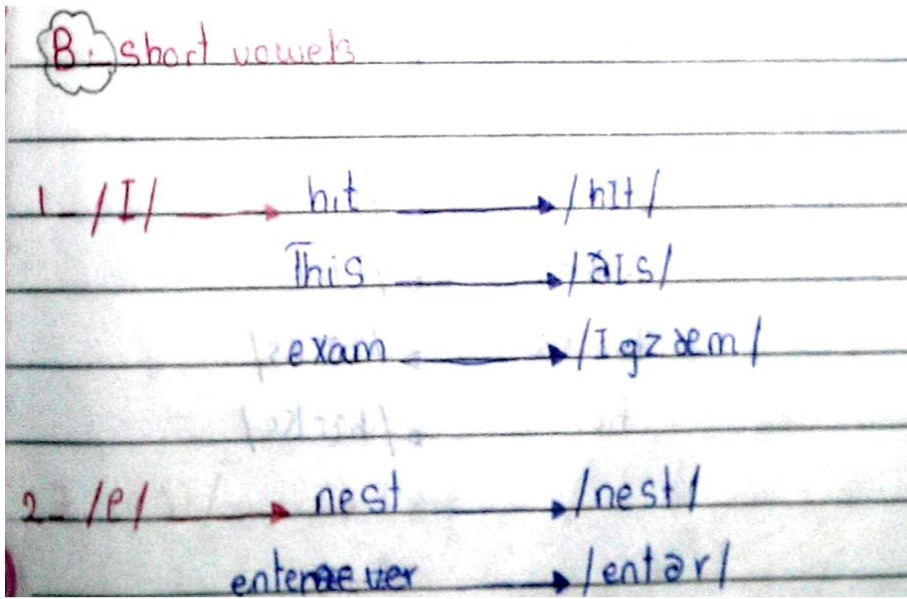 B. short vowels
1 - /I/ → hit → /hIt/
This → /ðIs/
exam → /Igzæm/
2 - /e/ → nest → /nest/
→ /entər/